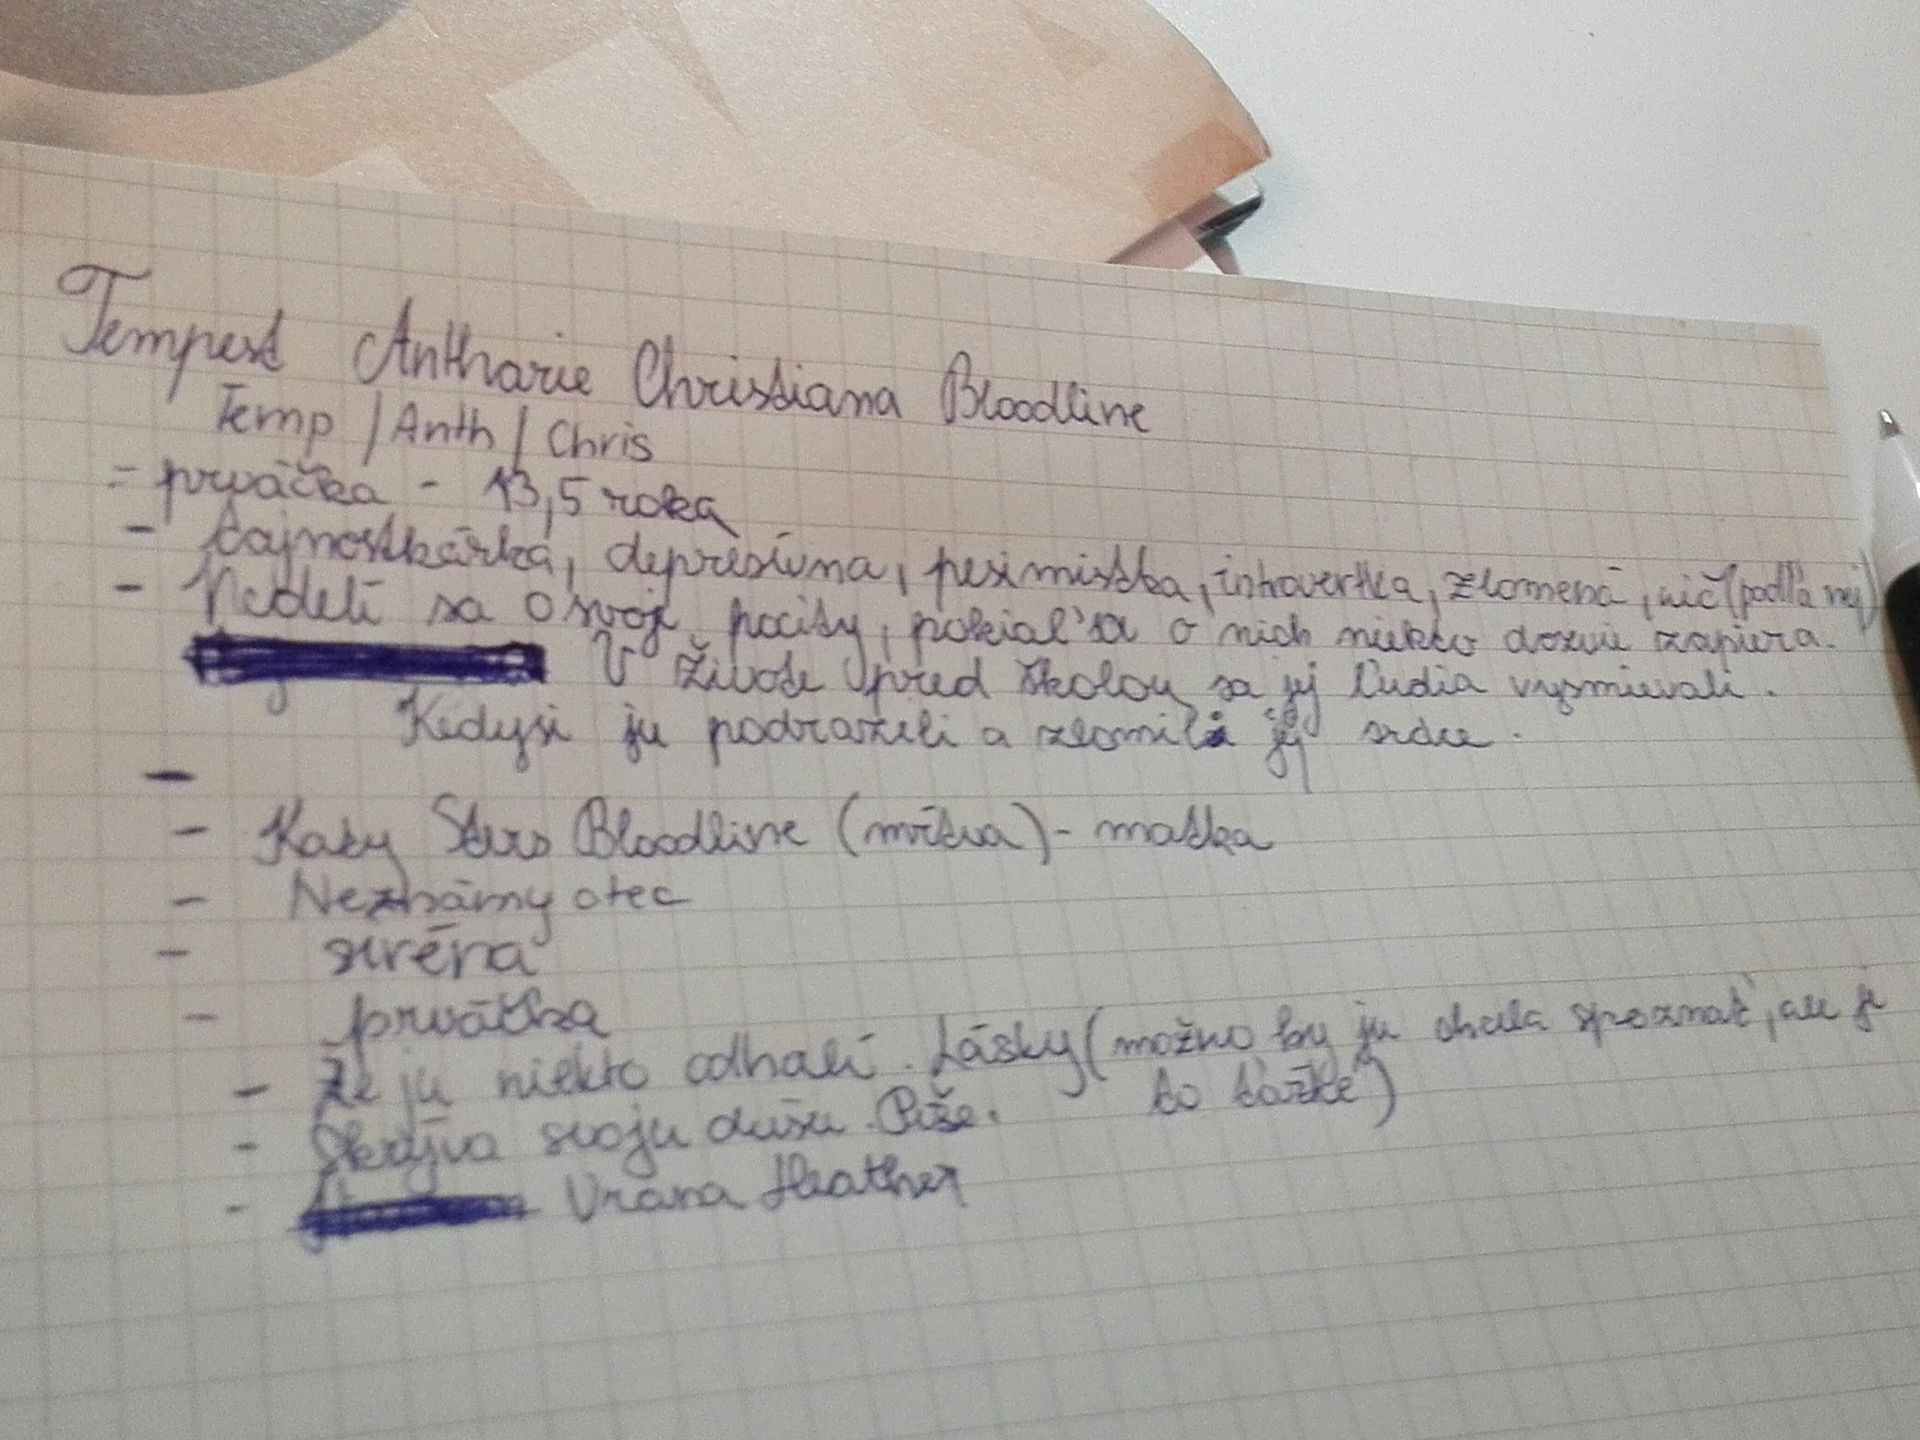 Tempest Antharie Christiana Bloodline
Temp / Anth / Chris
- prváčka - 13,5 roka
- tajnostkárka, depresívna, pesimistka, introvertka, zlomená, nič (podľa nej)
- Nedelí sa o svoje pocity, pokiaľ sa o nich niekto dozvie zapiera.
V živote pred školou sa jej ľudia vysmievali.
Kedysi ju podrazili a zlomili jej srdce.
-
- Katy Bloodline (mŕtva) - matka
- Neznámy otec
- siréna
- prváčka
- Že ju niekto odhalí. Lásky (možno by ju chcela spoznať, ale je
to ťažké)
- Skrýva svoju dušu. Píše.
- Vrana Heather